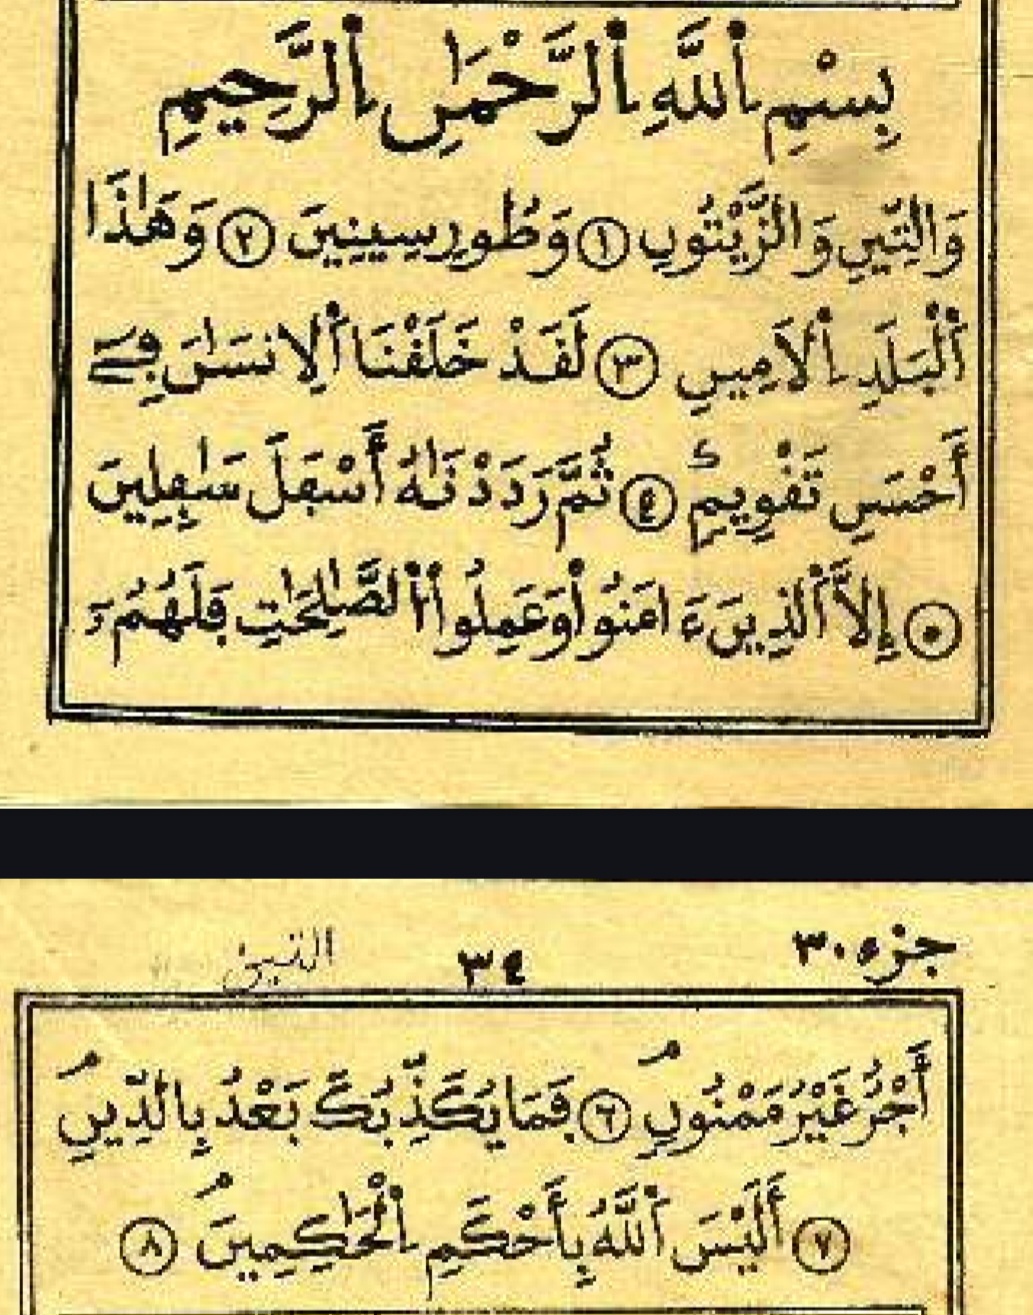 بِسْمِ اِ۬للَّهِ اِ۬لرَّحْمَٰنِ اِ۬لرَّحِيمِ
وَالتِّينِ وَالزَّيْتُونِ ١ وَطُورِ سِينِينَ ٢ وَهَٰذَا
اَ۬لْبَلَدِ اِ۬لَامِينِ ٣ لَقَدْ خَلَقْنَا اَ۬لِانسَٰنَ فِے
أَحْسَنِ تَقْوِيمٍ ٤ ثُمَّ رَدَدْنَٰهُ أَسْفَلَ سَٰفِلِينَ
٥ إِلَّا اَ۬لذِينَ ءَامَنُواْ وَعَمِلُواْ اُ۬لصَّٰلِحَٰتِ فَلَهُمُۥٓ
جزء ٣٠ ٣٤ التين
أَجْرٌ غَيْرُ مَمْنُونٍ ٦ فَمَا يُكَذِّبُكَ بَعْدُ بِالدِّينِ
٧ أَلَيْسَ اَ۬للَّهُ بِأَحْكَمِ اِ۬لْحَٰكِمِينَ ٨